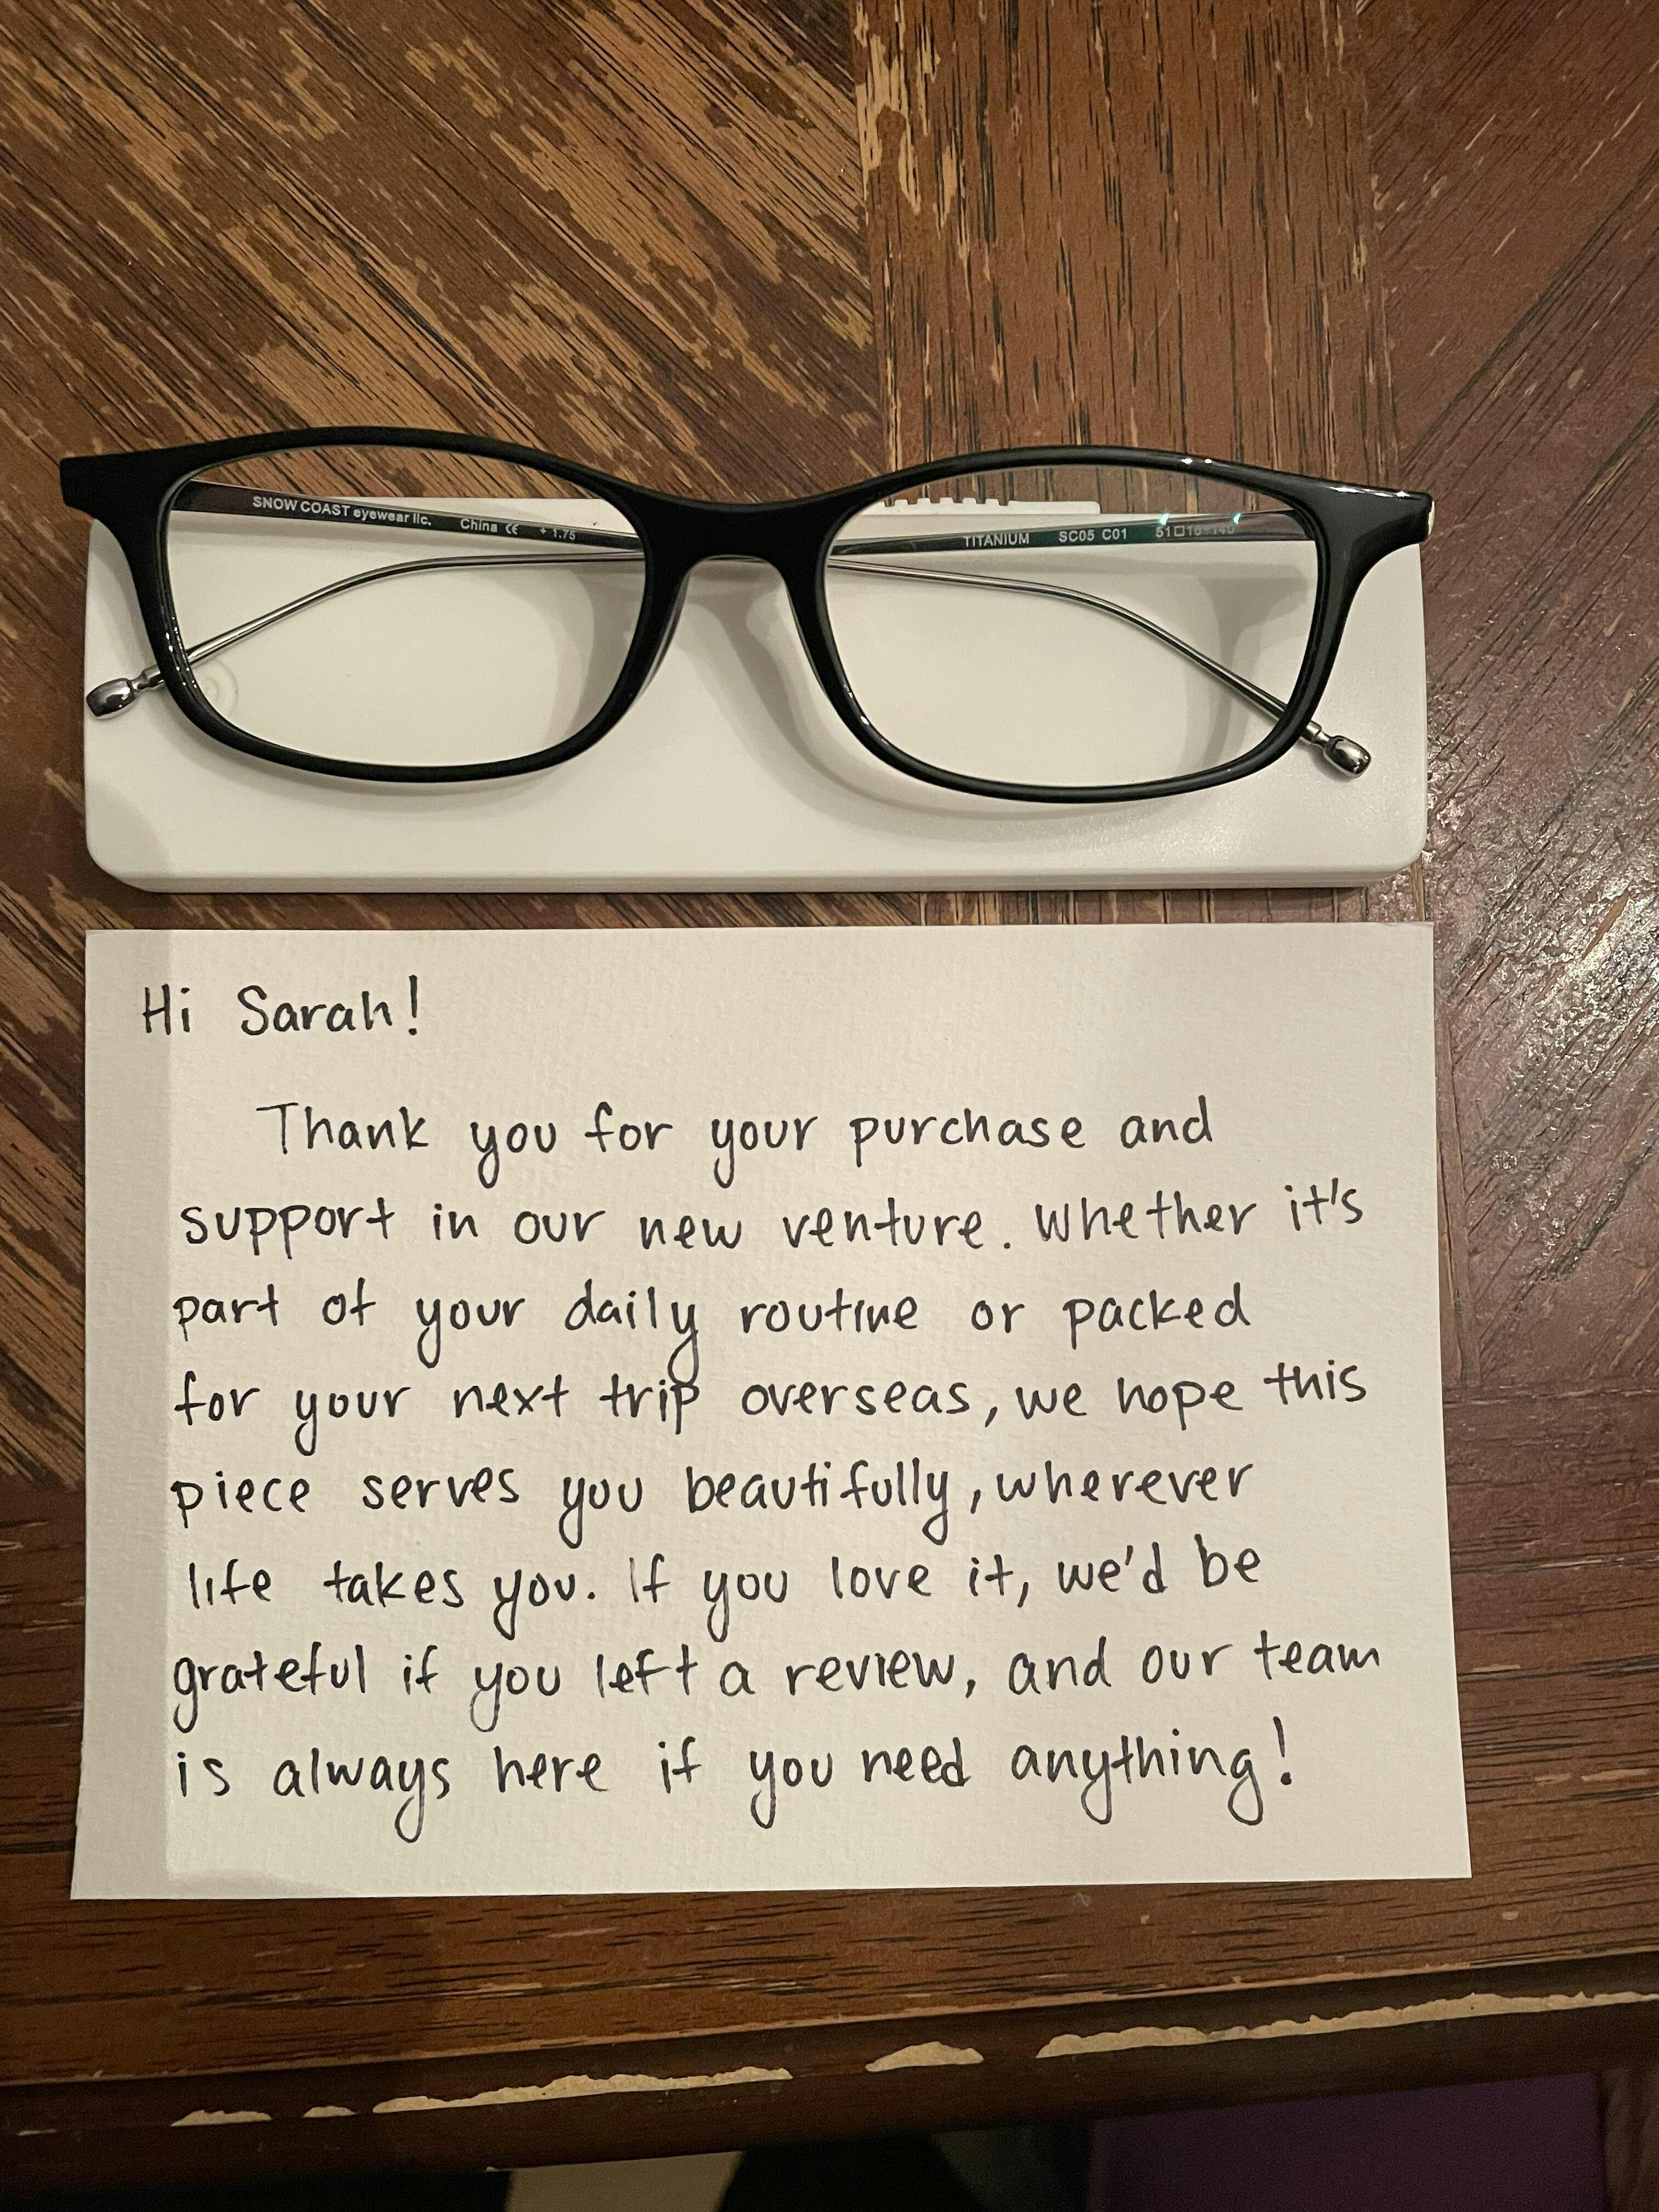 SNOW COAST eyewear llc. China CE +1.75
TITANIUM SC05 C01 51□16-140
Hi Sarah!
Thank you for your purchase and
support in our new venture. Whether it's
part of your daily routine or packed
for your next trip overseas, we hope this
piece serves you beautifully, wherever
life takes you. If you love it, we'd be
grateful if you left a review, and our team
is always here if you need anything!